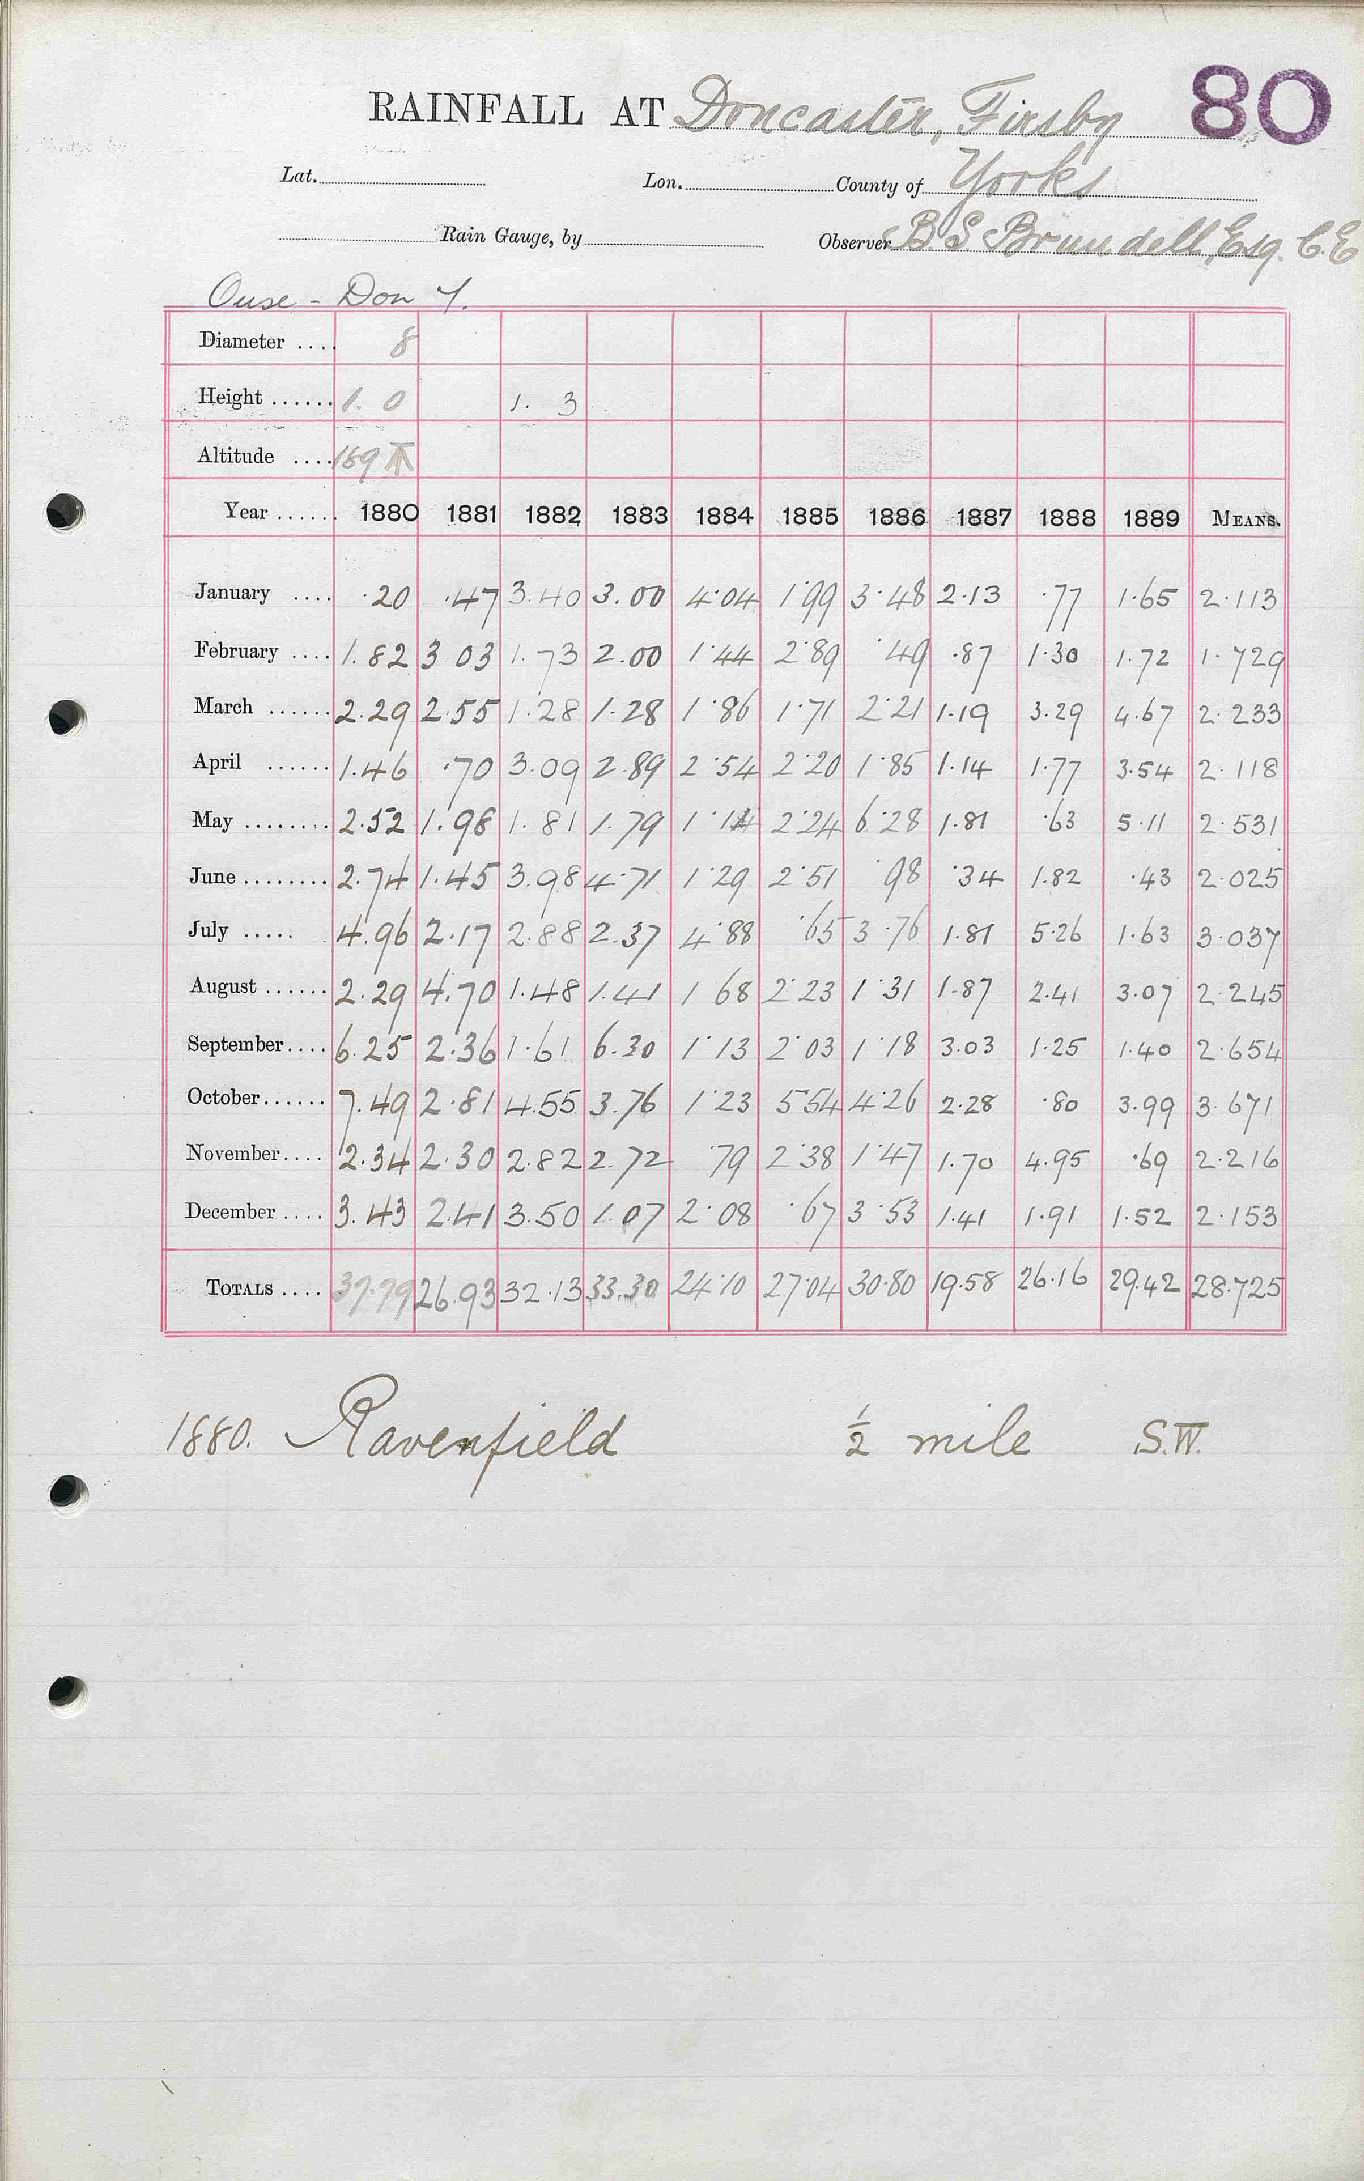 80
RAINFALL AT Doncaster, Firsby
Lat. Lon. County of Yorks
Rain Gauge, by Observer B. S. Brundell, Esq. C.E
Ouse - Don
Diameter .... 8
Height ...... 1. 0 1. 3
Altitude .... 169
Year ...... 1880 1881 1882 1883 1884 1885 1886 1887 1888 1889 MEANS.
January .... .20 .47 3.40 3.00 4.04 1.99 3.48 2.13 .77 1.65 2.113
February .... 1.82 3 03 1.73 2.00 1.44 2.89 .49 .87 1.30 1.72 1.729
March ...... 2.29 2.55 1.28 1.28 1.86 1.71 2.21 1.19 3.29 4.67 2.233
April ...... 1.46 .70 3.09 2.89 2.54 2.20 1.85 1.14 1.77 3.54 2.118
May ........ 2.52 1.98 1.81 1.79 1.14 2.24 6.28 1.81 .63 5.11 2.531
June ........ 2.74 1.45 3.98 4.71 1.29 2.51 .98 .34 1.82 .43 2.025
July ..... 4.96 2.17 2.88 2.37 4.88 .65 3.76 1.81 5.26 1.63 3.037
August ...... 2.29 4.70 1.48 1.41 1 68 2.23 1.31 1.87 2.41 3.07 2.245
September .... 6.25 2.36 1.61 6.30 1.13 2.03 1.18 3.03 1.25 1.40 2.654
October ...... 7.49 2.81 4.55 3.76 1.23 5.54 4.26 2.28 .80 3.99 3.671
November .... 2.34 2.30 2.82 2.72 .79 2.38 1.47 1.70 4.95 .69 2.216
December .... 3.43 2.41 3.50 1.07 2.08 .67 3.53 1.41 1.91 1.52 2.153
TOTALS .... 37.79 26.93 32.13 33.30 24.10 27.04 30.80 19.58 26.16 29.42 28.725
1880. Ravenfield ½ mile S.W.